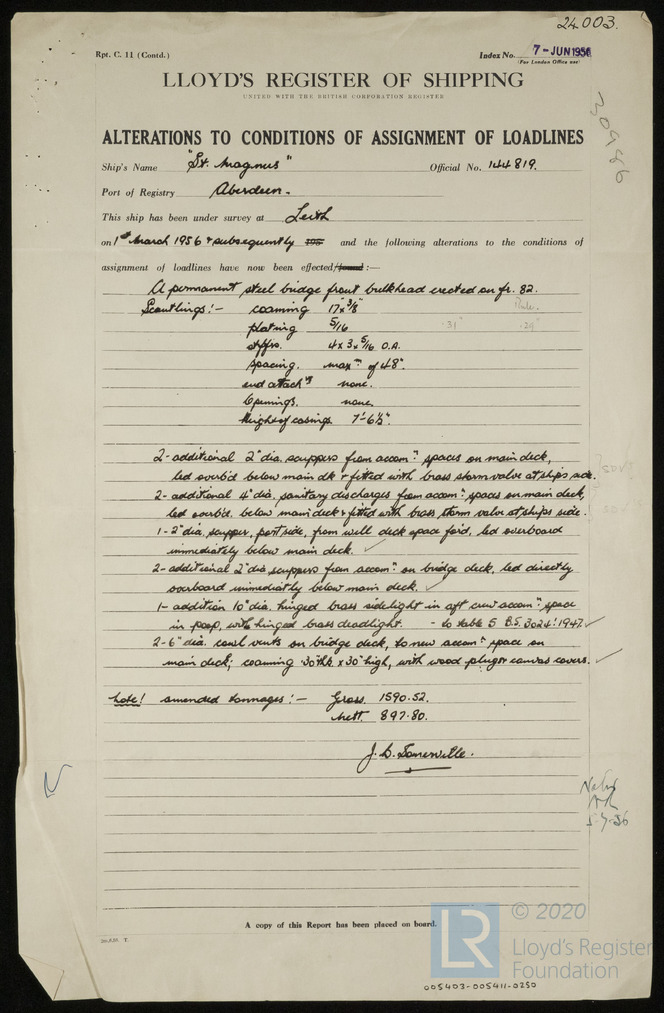 24003.
Rpt. C. 11 (Contd.)
Index No. 7-JUN 1956
(For London Office use)
LLOYD'S REGISTER OF SHIPPING
UNITED WITH THE BRITISH CORPORATION REGISTER
309486
ALTERATIONS TO CONDITIONS OF ASSIGNMENT OF LOADLINES
Ship's Name "St. Magnus" Official No. 144819.
Port of Registry Aberdeen.
This ship has been under survey at Leith
on 1st March 1956 & subsequently 195 and the following alterations to the conditions of
assignment of loadlines have now been effected/found:—
A permanent steel bridge front bulkhead erected on fr. 82.
Scantlings:- coaming 17" x 3/8" Rule.
plating 5/16 .31" .29"
stffrs. 4 x 3 x 5/16 O.A.
spacing. max m of 48".
end attach ts none.
Openings. none.
Height of casings. 7'-6½".
2- additional 2" dia. scuppers from accom n spaces on main deck,
led overb'd below main dk & fitted with brass storm valve at ships side.
2- additional 4" dia. sanitary discharges from accom: spaces on main deck,
led overb'd. below main deck & fitted with brass storm valve at ships side.
1- 2" dia. scupper, port side, from well deck space for'd, led overboard
immediately below main deck.
2- additional 2" dia scuppers from accom n on bridge deck, led directly
overboard immediately below main deck.
1- addition 10" dia. hinged brass sidelight in aft crew accom n space
in poop, with hinged brass deadlight. - to table 5 B.S. 3024: 1947.
2- 6" dia. cowl vents on bridge deck, to new accom n space on
main deck; coaming .30" thk x 30" high, with wood plugs & canvas covers.
Note! amended tonnages:- Gross. 1590.52.
Nett. 897.80.
J. D. Somerville.
5-7-56
A copy of this Report has been placed on board.
© 2020
LR
Lloyd's Register
Foundation
005403-005411-0250